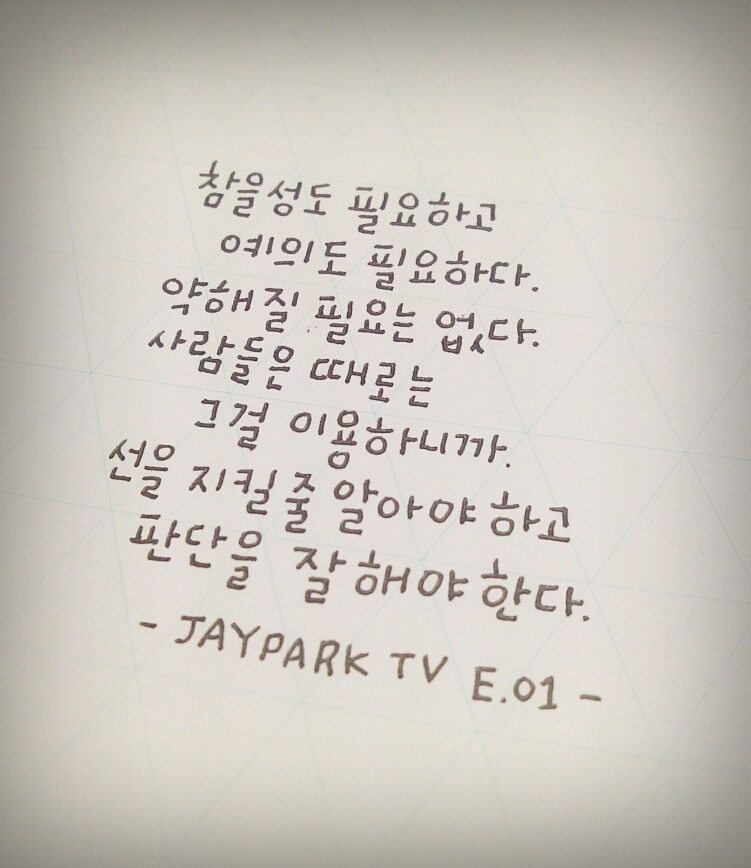 참을성도 필요하고
예의도 필요하다.
약해질 필요는 없다.
사람들은 때로는
그걸 이용하니까.
선을 지킬줄 알아야 하고
판단을 잘 해야 한다.
- JAYPARK TV E.01 -